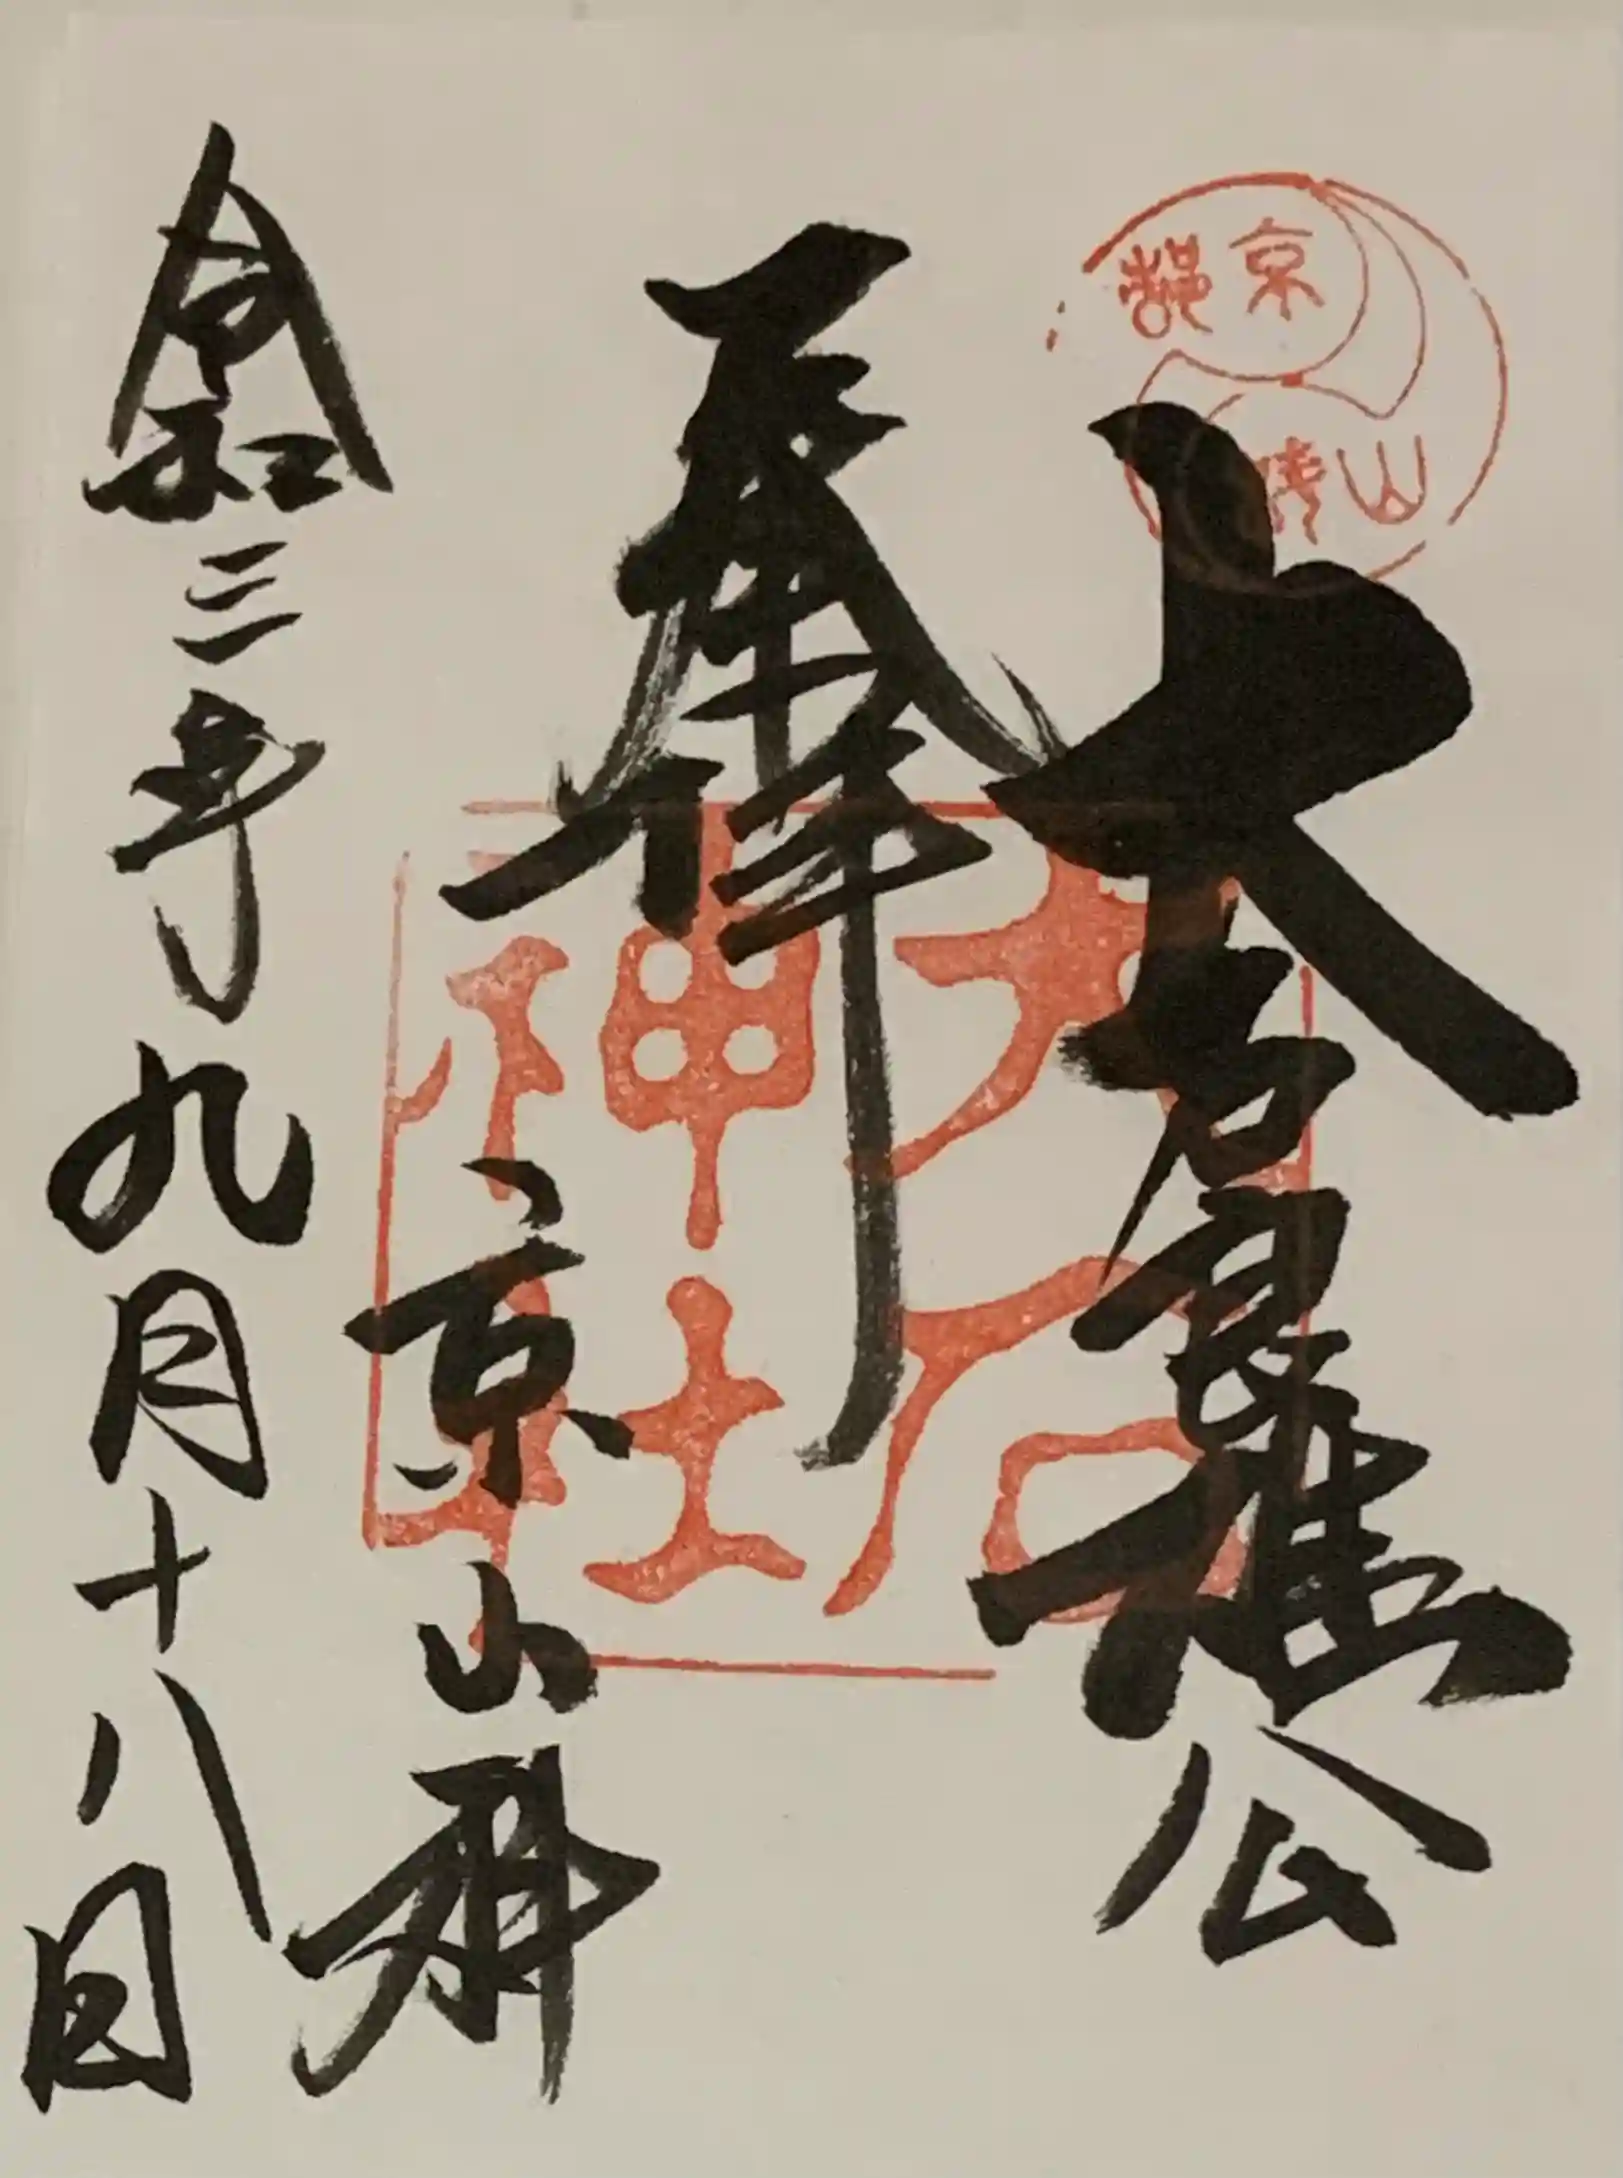 京都
山科
大石良雄公
奉拝
大石
神社
京山科
令和三年九月十八日